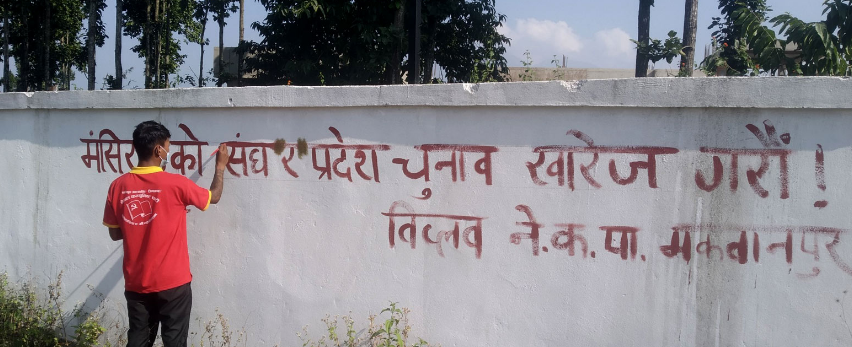 को संघ र प्रदेश चुनाव खारेज गरौं !
विप्लव ने.क.पा. मकवानपुर